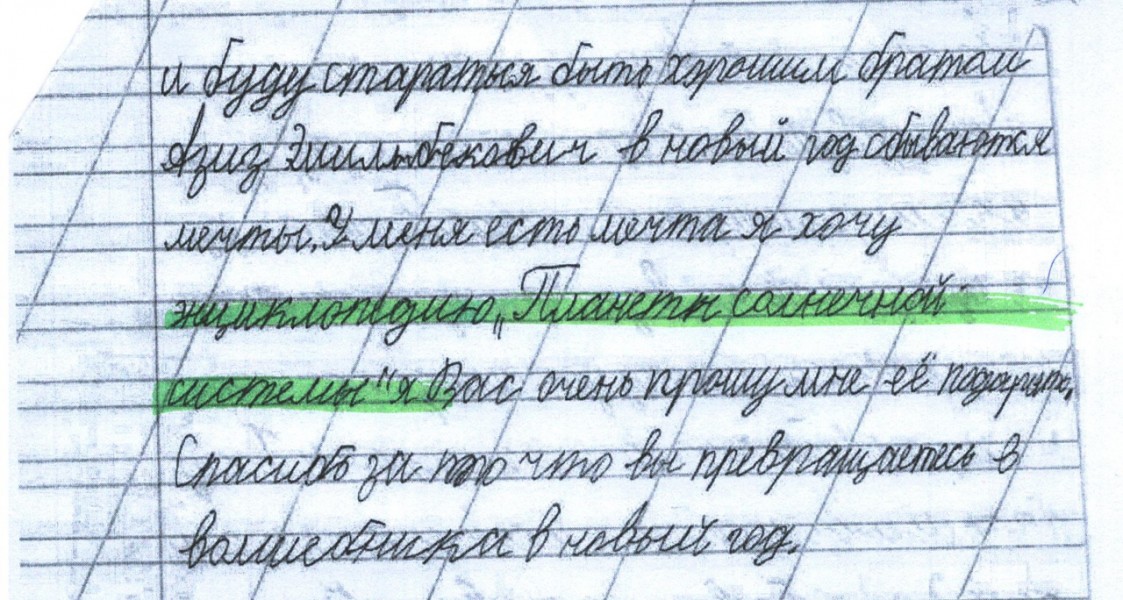 и буду стараться быть хорошим братом
Азиз Эшильбекович в новый год сбываются
мечты. У меня есть мечта я хочу
энциклопедию „Планеты солнечной
системы" я Вас очень прошу мне её подарить.
Спасибо за то что вы превращаетесь в
волшебника в новый год.